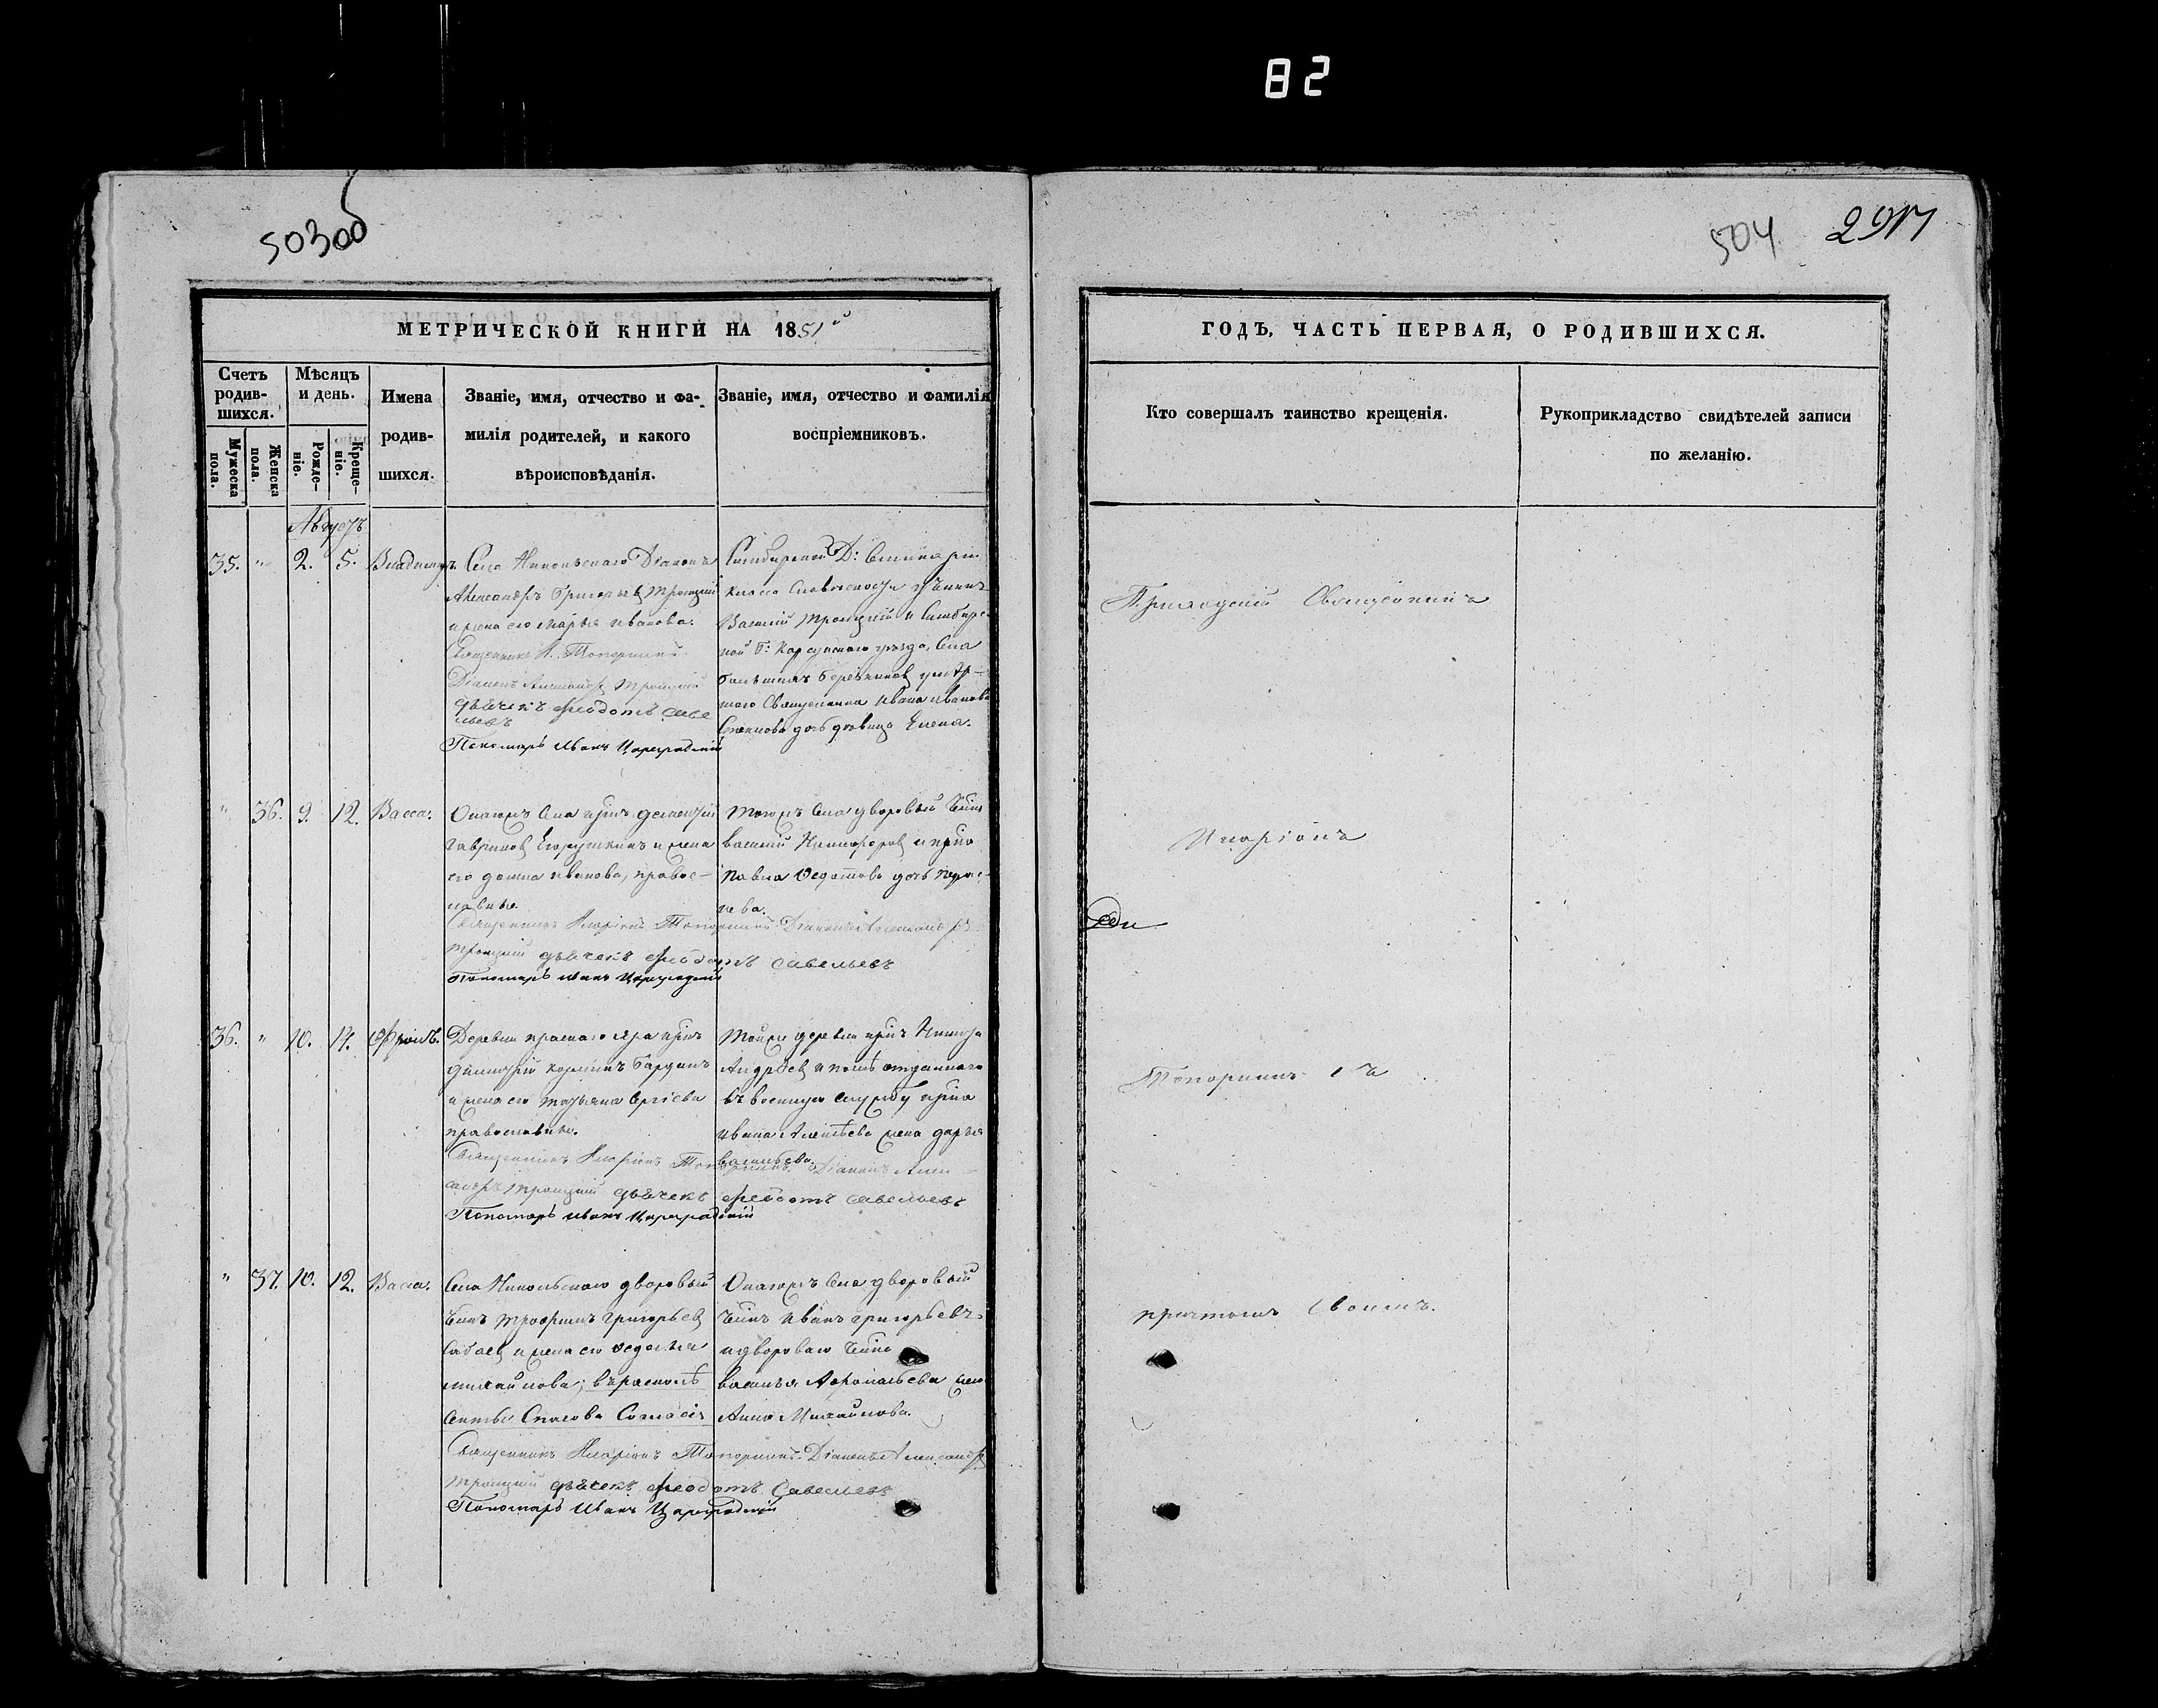 82
503об
504 297
МЕТРИЧЕСКОЙ КНИГИ НА 1851й
ГОДЪ, ЧАСТЬ ПЕРВАЯ, О РОДИВШИХСЯ.
Счетъ родив-шихся.
Мужеска пола.
Женска пола.
Мѣсяцъ и день.
Рожде-ніе.
Креще-ніе.
Имена
родив-
шихся.
Званіе, имя, отчество и фа-
милія родителей, и какого
вѣроисповѣданія.
Званіе, имя, отчество и фамилія
воспріемниковъ.
Кто совершалъ таинство крещенія.
Рукоприкладство свидѣтелей записи
по желанію.
Августъ
35. " 2. 5. Владимиръ.
Села Никольскаго Діаконъ
Александръ Григорьевъ Троицкій
и жена его Марья Иванова.
Священникъ И. Топорнинъ
Діаконъ Александръ Троицкій
дьячекъ Феодотъ Саве
льевъ
Пономарь Иванъ Цареградскій
Симбирской Д: Семинаріи
класса Словесности ученикъ
Василій Троицкій и Симбирс-
кой Г: Карсунскаго уѣзда, Села
Большихъ Березниковъ умер-
шаго Священника Ивана Иванова
дочь дѣвица Елена.
Приходскій Священникъ
" 36. 9. 12. Васса.
Онагожъ Села крін Дементій
Гавриловъ и жена
его Домна Иванова, правос-
лавные.
Священникъ Иларіонъ Топорнинъ Діаконъ Александръ
Троицкій дьячекъ Феодотъ Савельевъ
Пономарь Иванъ Цареградскій
Тогожъ Села дворовый Чинъ
Василій Никифоровъ и кріна
Павла Федотова дочь
Иларіонъ
36. " 10. 14. Фролъ.
Деревни Краснаго Яра крінъ
Димитрій
и жена его Татьяна Сергіева
православные.
Священникъ Иларіонъ Топорнинъ Діаконъ Алек-
сандръ Троицкій дьячекъ Феодотъ Савельевъ
Пономарь Иванъ Цареградскій
Тойже деревни крінъ
Андреевъ и отданнаго
въ военную службу кріна
Ивана Алексѣева жена Дарья
Васильева.
Топорнинъ съ
" 37. 10. 12. Васса.
Села Никольскаго дворовый
Чинъ Трофимъ Григорьевъ
и жена его Федосья
Михайлова; въ расколѣ
Секты Спасова Согласія
Священникъ Иларіонъ Топорнинъ Діаконъ Александръ
Троицкій дьячекъ Феодотъ Савельевъ
Пономарь Иванъ Цареградскій
Онагожъ Села дворовый
Чинъ Иванъ Григорьевъ
и двороваго Чина
Василья жена
Анна Михайлова.
причтомъ своимъ.